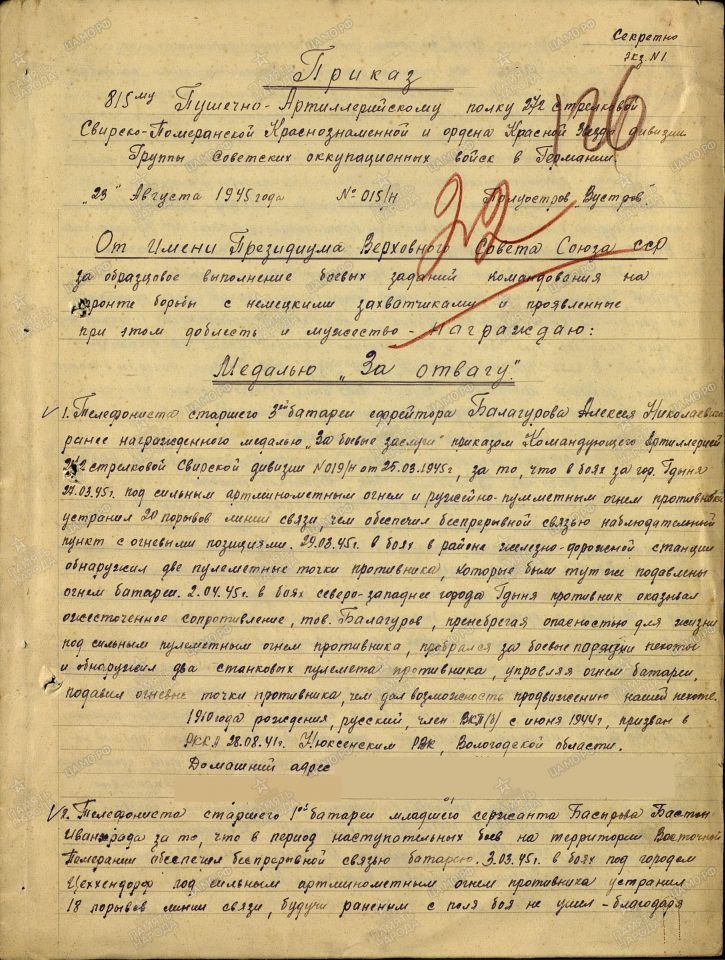 Секретно
Экз. N1
126
Приказ
815му Пушечно-Артиллерийскому полку 272 стрелковой
Свирско-Померанской Краснознаменной и ордена Красной Звезды дивизии
Группы Советских оккупационных войск в Германии
22
"23" Августа 1945 года № 015/н Полуостров "Вустров"
От Имени Президиума Верховного Совета Союза ССР
за образцовое выполнение боевых заданий командования на
фронте борьбы с немецкими захватчиками и проявленные
при этом доблесть и мужество - награждаю:
Медалью "За отвагу"
1. Телефониста старшего 3ей батареи ефрейтора Балагурова Алексея Николаевича
ранее награжденного медалью "За боевые заслуги" приказом Командующего Артиллерией
272 стрелковой Свирской дивизии N019/н от 25.03.1945г, за то, что в боях за гор. Гдыня
27.03.45г. под сильным артминометным огнем и ружейно-пулеметным огнем противника
устранил 20 порывов линии связи, чем обеспечил беспрерывной связью наблюдательный
пункт с огневыми позициями. 29.03.45г. в боях в районе железно-дорожной станции
обнаружил две пулеметные точки противника, которые были тут же подавлены
огнем батареи. 2.04.45г. в боях северо-западнее города Гдыня противник оказывал
ожесточенное сопротивление, тов. Балагуров, пренебрегая опасностью для жизни
под сильным пулеметным огнем противника, пробрался за боевые порядки пехоты
и обнаружил два станковых пулемета противника, управляя огнем батареи,
подавил огневые точки противника, чем дал возможность продвижению нашей пехоте.
1910 года рождения, русский, член ВКП(б) с июня 1944г, призван в
РККА 28.08.41г. Нюксенским РВК, Вологодской области.
Домашний адрес
2. Телефониста старшего 1ой батареи младшего сержанта
за то, что в период наступательных боев на территории Восточной
Померании обеспечил беспрерывной связью батарею. 3.03.45г. в боях под городом
Цеххендорф под сильным артминометным огнем противника устранил
18 порывов линии связи, будучи раненым с поля боя не ушел - благодаря